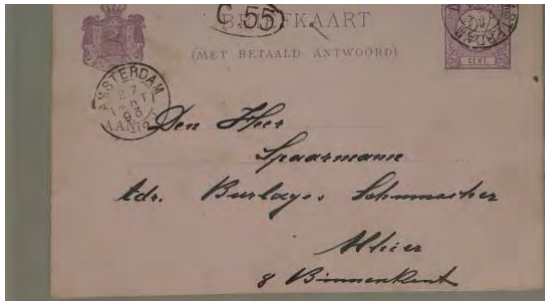 C. 55
BRIEFKAART
(MET BETAALD ANTWOORD)
CENT
AMSTERDAM
27
93
Den Heer
Spaarmann
Adr. Burlage & Schumacher
Alhier
8 Binnenkant